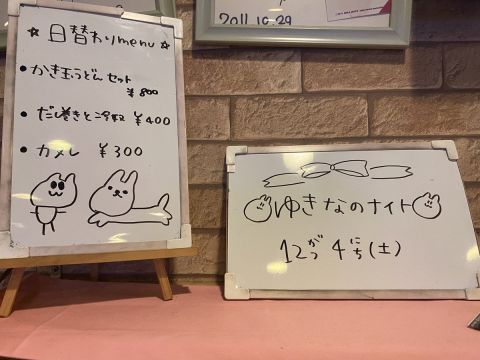 2011.10.29
☆日替わりmenu☆
・かき玉うどんセット
¥800
・だし巻きと冷奴 ¥400
・カメレ ¥300
ゆきなのナイト
12がつ4にち(土)